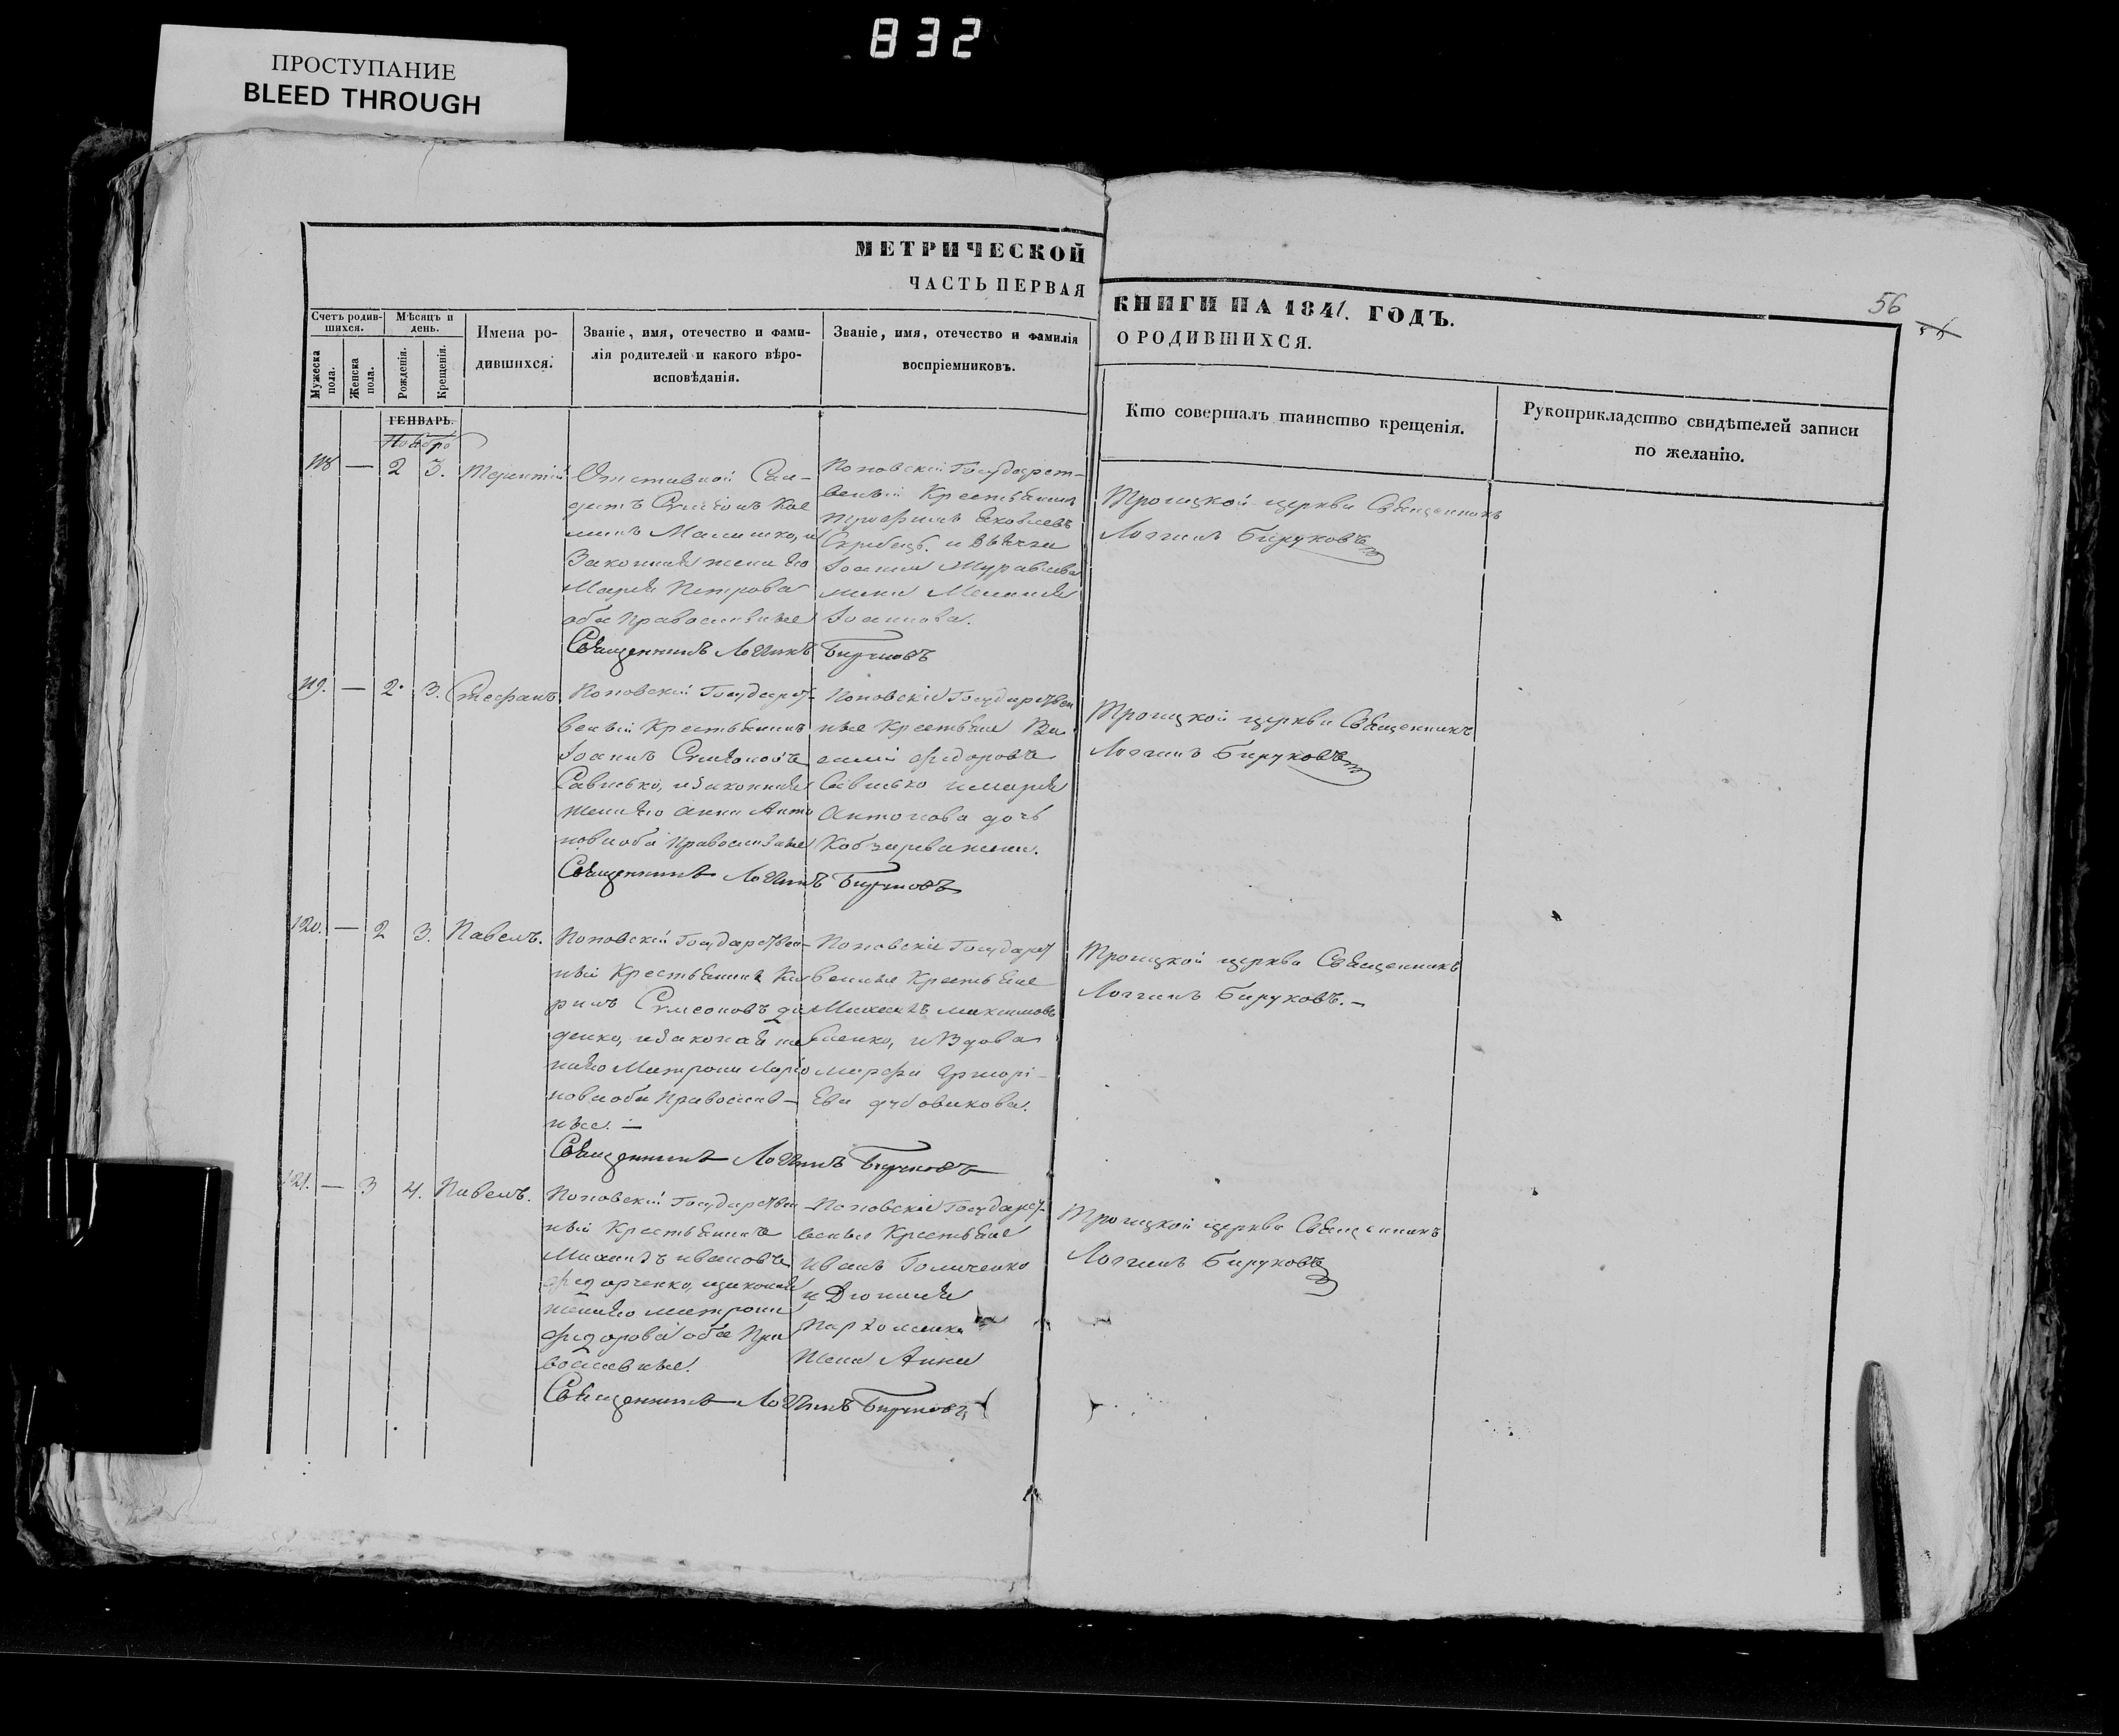 832
ПРОСТУПАНИЕ
BLEED THROUGH
МЕТРИЧЕСКОЙ
ЧАСТЬ ПЕРВАЯ
КНИГИ НА 1841. ГОДЪ.
О РОДИВШИХСЯ.
56
Счетъ родив-
шихся.
Мѣсяцъ и
день.
Мужеска
пола.
Женска
пола.
Рожденія.
Крещенія.
Имена ро-
дившихся.
Званіе, имя, отечество и фами-
лія родителей и какого вѣро-
исповѣданія.
Званіе, имя, отечество и фамилія
воспріемниковъ.
Кто совершалъ таинство крещенія.
Рукоприкладство свидѣтелей записи
по желанію.
ГЕНВАРЬ.
Ноября
118 — 2 3. Терентій
Отставной Сол-
датъ
законная жена его
Марія Петрова
оба Православные
Поповскій Государст-
веный Крестьянинъ
Яковлевъ
Іоанна Муравлева
жена Меланія
Іоаннова.
Священникъ Логгинъ Бируковъ
Троицкой церкви Священникъ
Логгинъ Бируковъ
119. — 2. 3. Стефанъ
Поповскій Государст-
веный Крестьянинъ
Іоаннъ Симеоновъ
Сависько, и законная
жена его Анна Анто
нова оба Православные
Поповскіе Государствен
ные Крестьяне Ва
силій Федоровъ
Сависько и Марія
Антонова дочь
Священникъ Логгинъ Бируковъ
Троицкой церкви Священникъ
Логгинъ Бируковъ
120. — 2 3. Павелъ.
Поповскій Государствен-
ный Крестьянинъ Ки
рилъ Симеоновъ
денко, и законая же
на его Матрона
нова оба Православ-
ные. —
Поповскіе Государст
венные Крестьяне
Михаилъ Максимовъ
и Вдова
Марфа Григорі-
ева
Священникъ Логгинъ Бируковъ
Троицкой церкви Священникъ
Логгинъ Бируковъ. —
121. — 3 4. Павелъ.
Поповскій Государствен
ный Крестьянинъ
Михаилъ Ивановъ
Федорченко, и законая
жена его Матрона
Федорова оба Пра
вославные.
Поповскіе Государст-
венные Крестьяне
Иванъ Голиченко
и
Пархоменка
жена Анна
Священникъ Логгинъ Бируковъ
Троицкой церкви Священникъ
Логгинъ Бируковъ